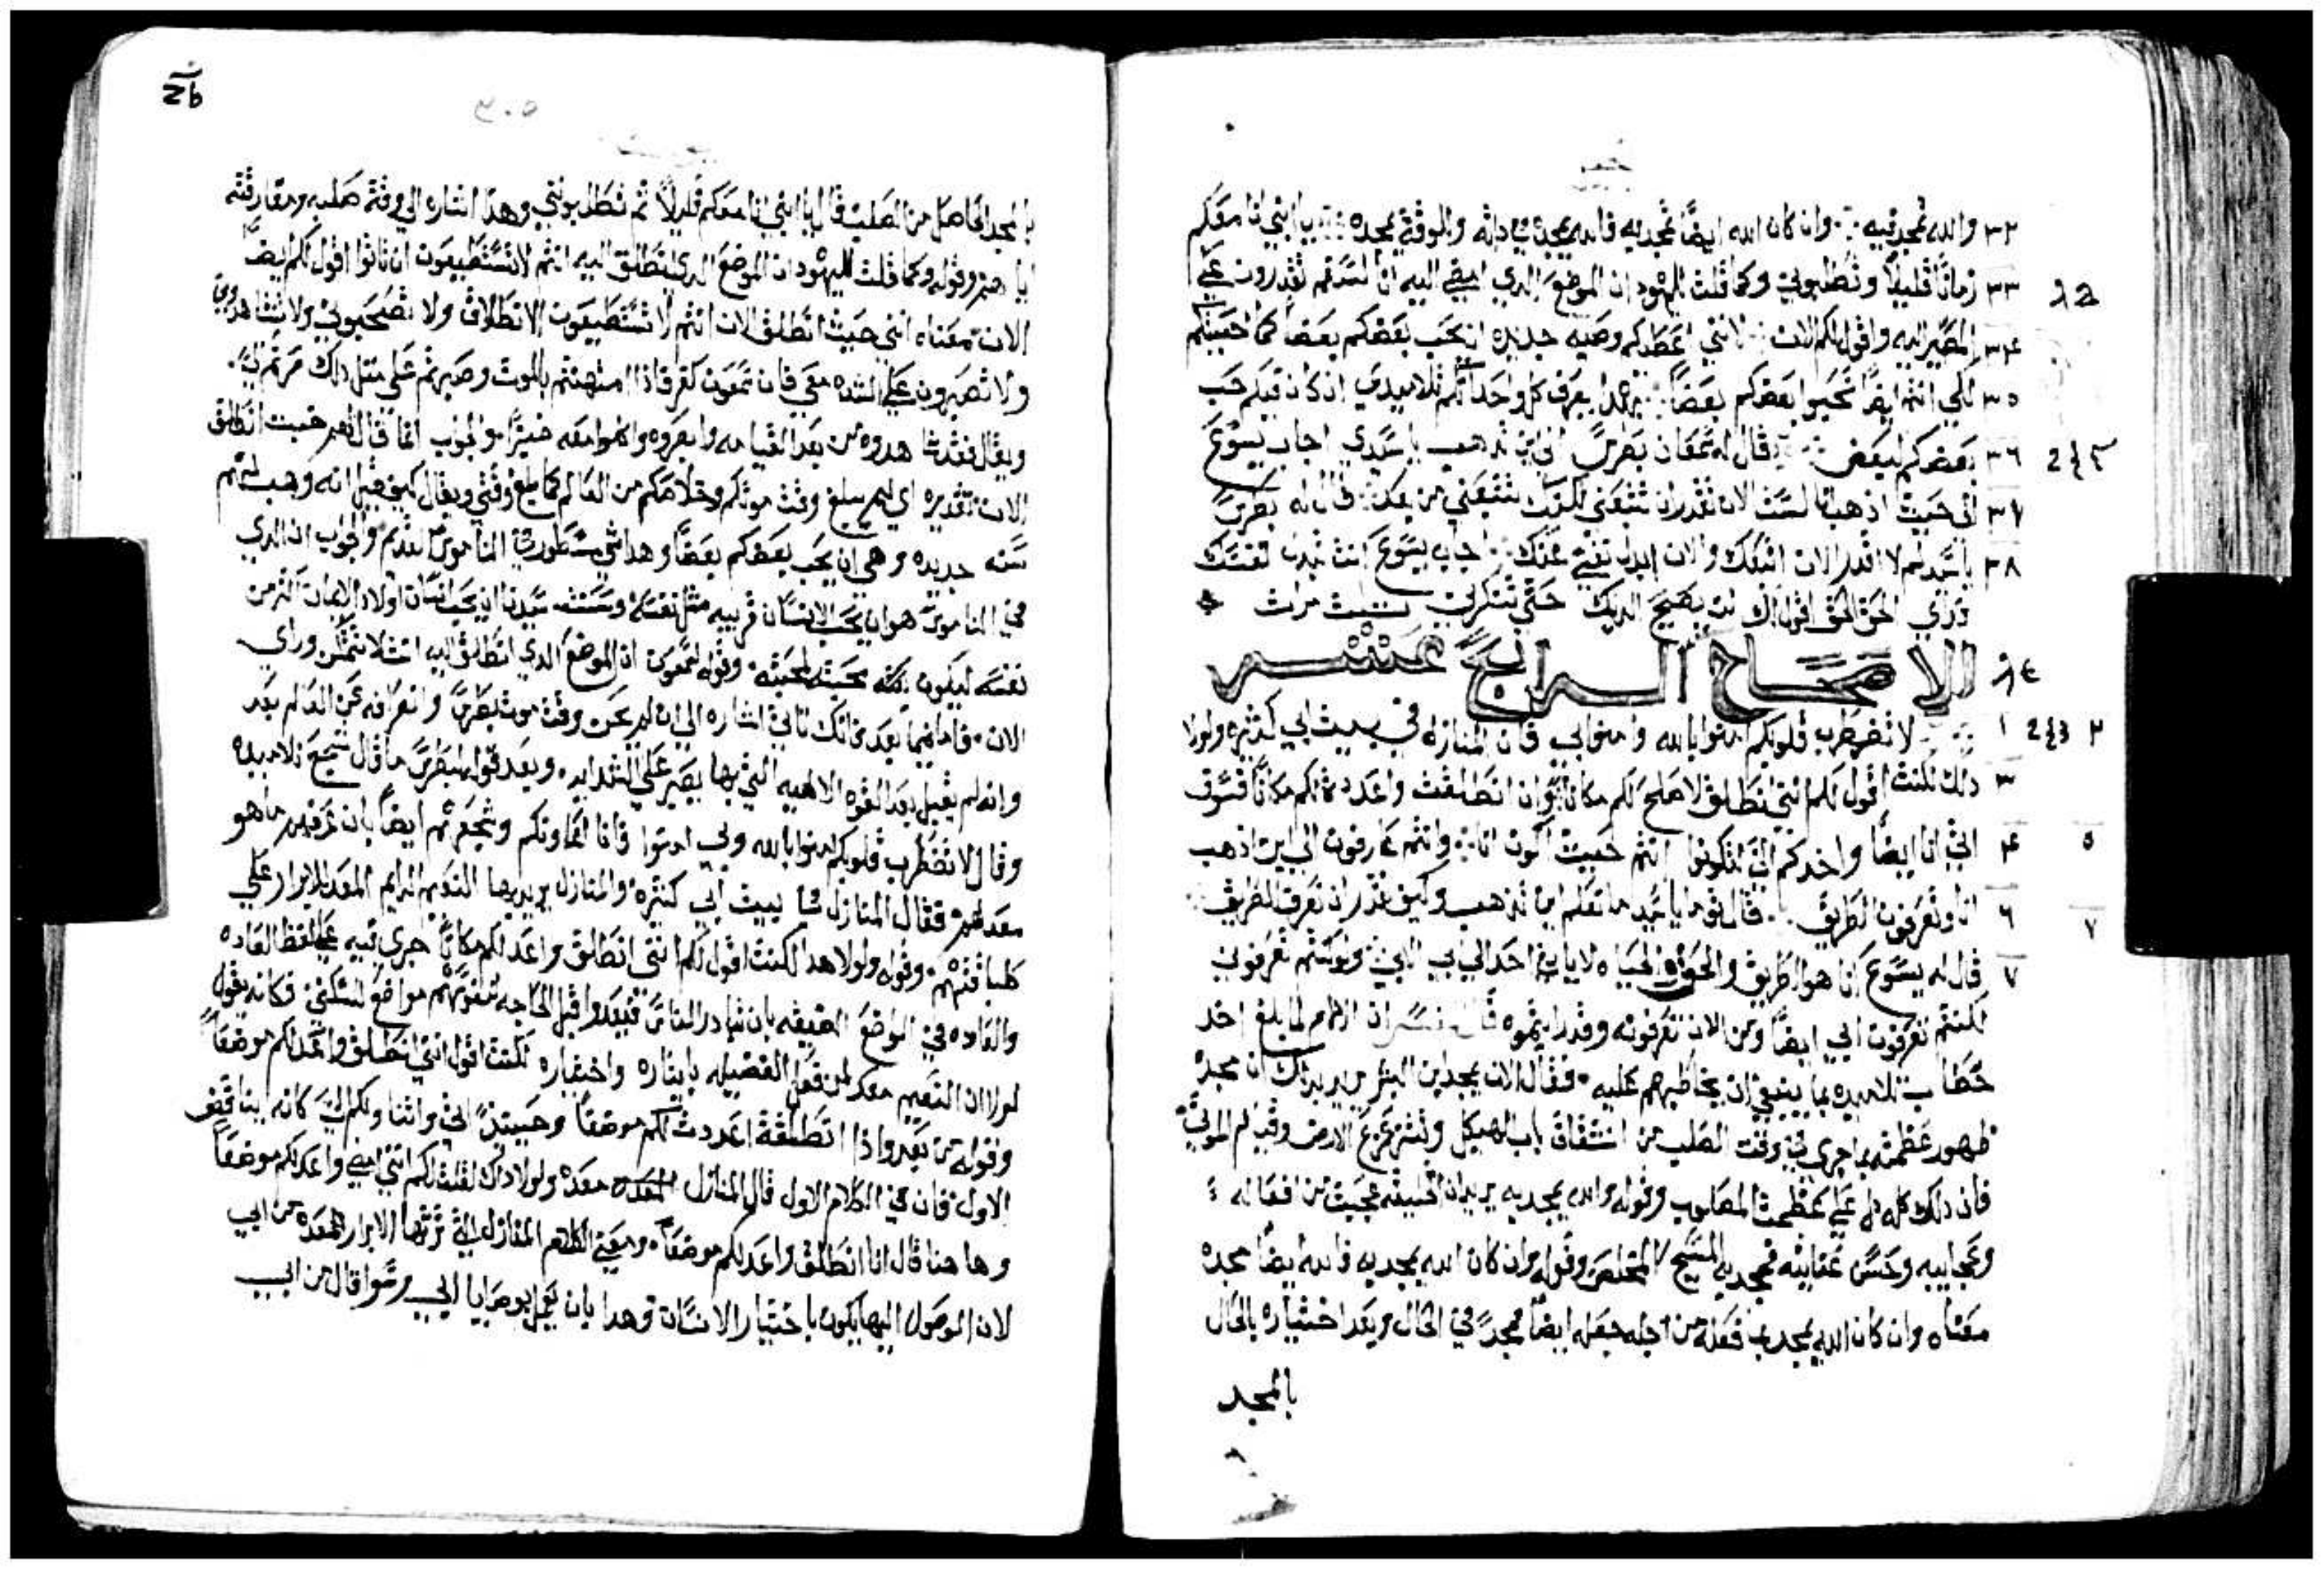 ٣٢ والله تمجد فيه وان كان الله ايضًا تمجد به فالله يمجده في ذاته وللوقت يمجده يا ابني انا معكم
٣٣ زمانًا قليلًا وتطلبوني وكما قلت لليهود ان الموضع الدي امضي اليه انا لستم تقدرون علي
٣٤ المصير اليه واقول لكم الان انني اعطيكم وصيه جديده ان يحب بعضكم بعضا كما احببتكم
٣٥ لكي انتم ايضًا تحبوا بعضكم بعضًا بهدا يعرف كل واحد انكم تلاميدي اذ كان فيكم حب
٣٦ بعضكم لبعض قال له شمعان بطرس الي اين تذهب يا سيدي اجاب يسوع
٣٧ الي حيث اذهب انا لست الان تقدر ان تتبعني لكنك تتبعني من بعد قال له بطرس
٣٨ يا سيد لم لا اقدر الان اتبعك والان ابدل نفسي عنك اجاب يسوع انت تبدل نفسك
دوني الحق الحق اقول لك لن يصيح الديك حتي تنكرني ثلث مرات
الاصحاح الرابع عشر
١ لا تضطرب قلوبكم امنوا بالله وامنوا بي فان المنازل في بيت ابي كثيره ولولا
٣ دلك لكنت اقول لكم انني انطلق لاصلح لكم مكانا وان انطلقت واعددت لكم مكانًا فسوف
٤ اتي انا ايضًا واخدكم الي لتكونوا انتم حيث اكون انا وانتم عارفون الي اين اذهب
٦ انا وتعرفون الطريق قال توما يا سيد ما نعلم اين تذهب وكيف نقدر ان نعرف الطريق
٧ قال له يسوع انا هو الطريق والحق والحياه لا ياتي احد الي ابي الا بي ولو كنتم تعرفوني
لكنتم تعرفون ابي ايضًا ومن الان تعرفونه وقد رايتموه قال المفسر ان الرسم لما بلغ اخد
خطاب تلاميده بما ينبغي ان يخاطبهم عليه فقال الان يمجد ابن البشر يريد بداك ان مجده
ظهور عظمته بما جري في وقت الصلب من انشقاق باب الهيكل وتزعزع الارض وقيام الموتي
فان دلك كله دل علي عظمت المصلوب وقوله والله يمجد به يريد ان الخليقه عجبت من افعاله
وعجايبه وحسن عنايته فمجد به المسيح المخلص وقوله وان كان الله يمجد به فالله ايضا مجده
معناه وان كان الله يمجد بما فعله من اجله جعله ايضا مجدًا في الحال وبعد اختياره بالحال
بالمجد
٣٠٥
بالمجد الحاصل من الصلب قال يا ابني انا معكم قليلًا ثم تطلبونني وهدا اشاره الي وقت صلبه ومفارقته
وقوله وكما قلت لليهود ان الموضع الدي انطلق اليه انتم لا تستطيعون ان تاتوا اقول لكم ايضًا
الان معناه انني حيث انطلق الان انتم لا تستطيعون الانطلاق ولا تصحبوني ولا تشاهدوني
ولا تصبرون علي الشده معي فاذا امتهنتم بالموت وصبرتم علي مثل دلك صرتم الي
ويقال فقد شاهدوه من بعد القيامه وابصروه واكلوا معه خبزًا والجواب انما قال لهم حيث انطلق
الان تقديره اي لم يبلغ وقت موتكم وخلاصكم من العالم كما بلغ وقتي ويقال كيف قيل انه وهب لهم
سنه جديده وهي ان يحب بعضكم بعضًا وهدا شي مسطور في الناموس القديم والجواب ان الدي
في الناموس هو ان يحب الانسان قريبه مثل نفسه وسنته سيدنا ان يحب انسان اولاد الايمان اكثر من
نفسه ليكون محبته لمحبته وقوله لشمعون ان الموضع الدي انطلق اليه انت لا تتمكن وراي
الان فاما فيما بعد فانك تاتي اشاره الي ان لم يحن وقت موت بطرس وانصرافه عن العالم بعد
وانه لم يقبل بعد القوه الالاهيه التي بها يصبر علي الشدايد وبعد قوله لبطرس ما قال شجع تلاميده
وقال لا تضطرب قلوبكم امنوا بالله وبي امنوا فانا اعاونكم وشجعهم ايضًا بان عرفهم ما هو
معد لهم فقال المنازل في بيت ابي كثيره والمنازل يريد بها النعيم الدايم المعد للابرار علي
طبقتهم وقوله ولولا هدا لكنت اقول لكم انني انطلق واعد لكم مكانًا جري فيه علي لفظ العاده
والعاده في المواضع الضيقه بان يبادر الناس فيعدوا قبل الحاجه نفوسهم مواضع للسكني فكانه يقول
لولا ان النعيم معد لمن فعل الفضيله بايثاره واختياره لكنت اقول انني انطلق واعد لكم موضعًا
وقوله من بعد واذا انطلقت اعددت لكم موضعًا وحينيذٍ اتي واخدكم الي كانه يناقض
الاول فان في الكلام الاول قال المنازل معده ولولا داك لقلت لكم انني امضي واعد لكم موضعًا
وها هنا قال انا انطلق واعد لكم موضعًا ومعني الكلام المنازل التي ترثها الابرار المعده من ابي
لان الوصول اليها يكون باختيار الانسان وهدا بان يعمل بوصايا ابي وسوا قال من ابي